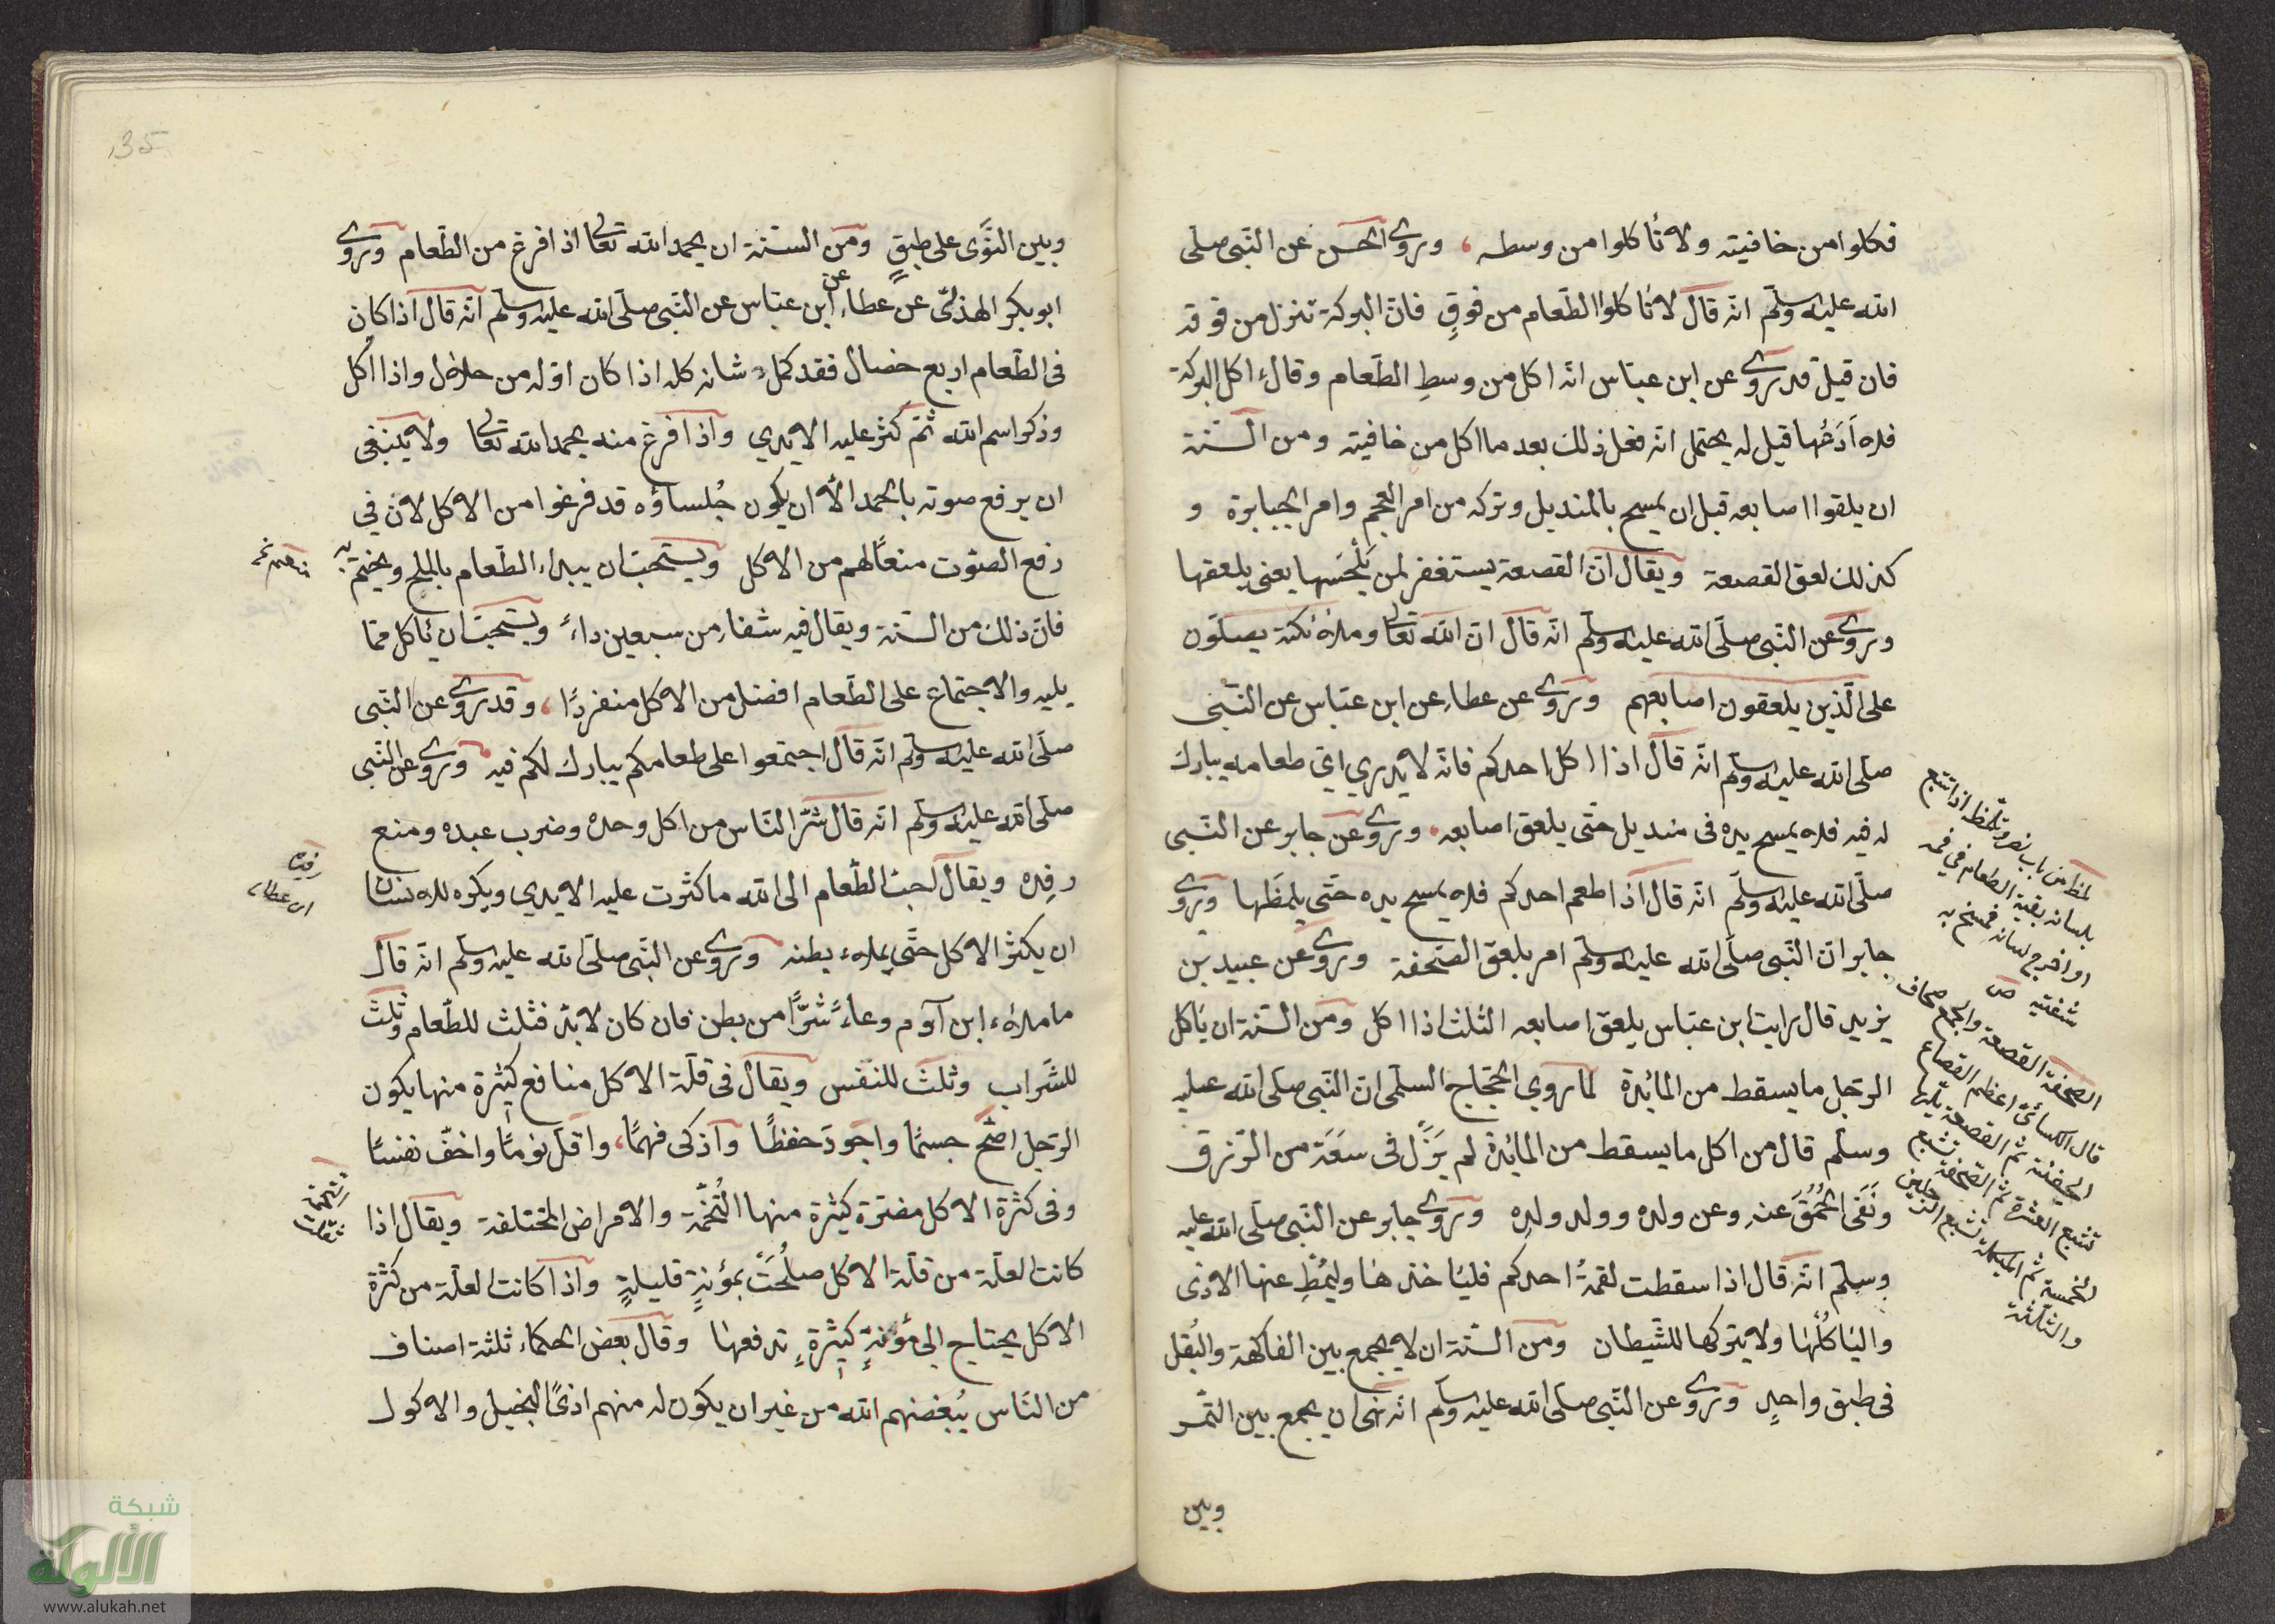 فكلوا من حافيته ولا تأكلوا من وسطه، وروى الحسن عن النبي صلى
الله عليه وسلم انه قال لا تاكلوا الطعام من فوقِ فان البركة تنزل من فوقه
فان قيل قد روى عن ابن عباس انه اكل من وسطِ الطعام وقال اكل البركة
فلا اَدَعُها قيل له يحتمل انه فعل ذلك بعد ما اكل من حافيته ومن السنة
ان يلقوا اصابعه قبل ان يمسح بالمنديل وتركه من امر العجم وامر الجبابرة و
كذلك لعق القصعة ويقال ان القصعة يستغفر لمن يَلْحَسُها يعنى يلعقها
وروى عن النبي صلى الله عليه وسلم انه قال ان الله تعالى وملائكته يصلون
على الذين يلعقون اصابعهم وروى عن عطاء عن ابن عباس عن النبي
صلى الله عليه وسلم انه قال اذا اكل احدكم فانه لا يدري اي طعامه يبارك
له فيه فلا يمسح يده فى منديل حتى يلعق اصابعه، وروى عن جابر عن النبي
صلى الله عليه وسلم انه قال اذا طعم احدكم فلا يمسح يده حتى يلمظها وروى
جابر ان النبي صلى الله عليه وسلم امر بلعق الصحفة وروى عن عبيد بن
يزيد قال رايت ابن عباس يلعق اصابعه الثلث اذا اكل ومن السنة ان يأكل
الرجل ما يسقط من المائدة لما روي الحجاج السلمى ان النبي صلى الله عليه
وسلم قال من اكل ما يسقط من المائدة لم يَزَل فى سَعَة من الرزق
ونَفَى الحُمُقَ عنه وعن ولده وولد ولده وروى جابر عن النبي صلى الله عليه
وسلم انه قال اذا سقطت لقمةُ احدِكم فلياخذها وليُمِطْ عنها الاذى
والياكُلْها ولا يتركها للشيطان ومن السنة ان لا يجمع بين الفاكهة والبُقل
فى طبق واحدٍ وروى عن النبي صلى الله عليه وسلم انه نهى ان يجمع بين التمر
وبين
لمظ من باب نصر وتلمّظ اذا تتبع
بلسانه بقية الطعام في فمه
او اخرج لسانه فمسح به
شفتيه ص
الصحفة القصعة والجمع صحاف
قال الكسائى اعظم القصاع
الجفنة ثم القصعة تليها
تشبع العشرة ثم الصحفة تشبع
الخمسة ثم الميكلة تشبع الرجلين
والثلثة
135
وبين النوَى على طبقٍ ومن السنة ان يحمد الله تعالى اذا فرغ من الطعام وروى
ابو بكر الهذلىّ عن عطاء عن ابن عباس عن النبي صلى الله عليه وسلم انه قال اذا كان
فى الطعام اربع خصال فقد كمل شانه كله اذا كان اوله من حلال واذا اكل
وذكر اسم الله ثم كثر عليه الايدي واذا فرغ منه يحمد الله تعالى ولا ينبغى
ان يرفع صوته بالحمد الا ان يكون جُلساؤه قد فرغوا من الاكل لان في
رفع الصوت منعًا لهم من الاكل ويستحب ان يبداء الطعام بالملح ويختم به
فان ذلك من السنة ويقال فيه شفاء من سبعين داءً ويستحب ان يأكل مما
يليه والاجتماع على الطعام افضل من الاكل منفردًا، وقد روى عن النبي
صلى الله عليه وسلم انه قال اجتمعوا على طعامكم يبارك لكم فيه وروى عن النبي
صلى الله عليه وسلم انه قال شرّ الناس من اكل وحده وضرب عبده ومنع
رفِده ويقال احبّ الطعام الى الله ما كثرت عليه الايدي ويكره للانسان
ان يكثر الاكل حتى يملاء بطنه وروى عن النبي صلى الله عليه وسلم انه قال
ما ملاء ابن آدم وعاءً شرًّا من بطن فان كان لابدّ فثلث للطعام وثلث
للشراب وثلث للنفس ويقال فى قلة الاكل منافع كثيرة منها يكون
الرجل اصحّ جسمًا واجودَ حفظًا واذكى فهمًا، واقل نومًا واخفّ نفسًا
وفى كثرة الاكل مضرّة كثيرة منها التُخَمة والامراض المختلفة ويقال اذا
كانت العلة من قلة الاكل صلُحَت بمؤنةٍ قليلةٍ واذا كانت العلة من كثرة
الاكل يحتاج الى مؤنةٍ كثيرةٍ تدفعها وقال بعض الحكماء ثلثة اصناف
من الناس يُبغضهم الله من غير ان يكون له منهم اذىً البخيل والاكول
شبكة
الألوكة
www.alukah.net